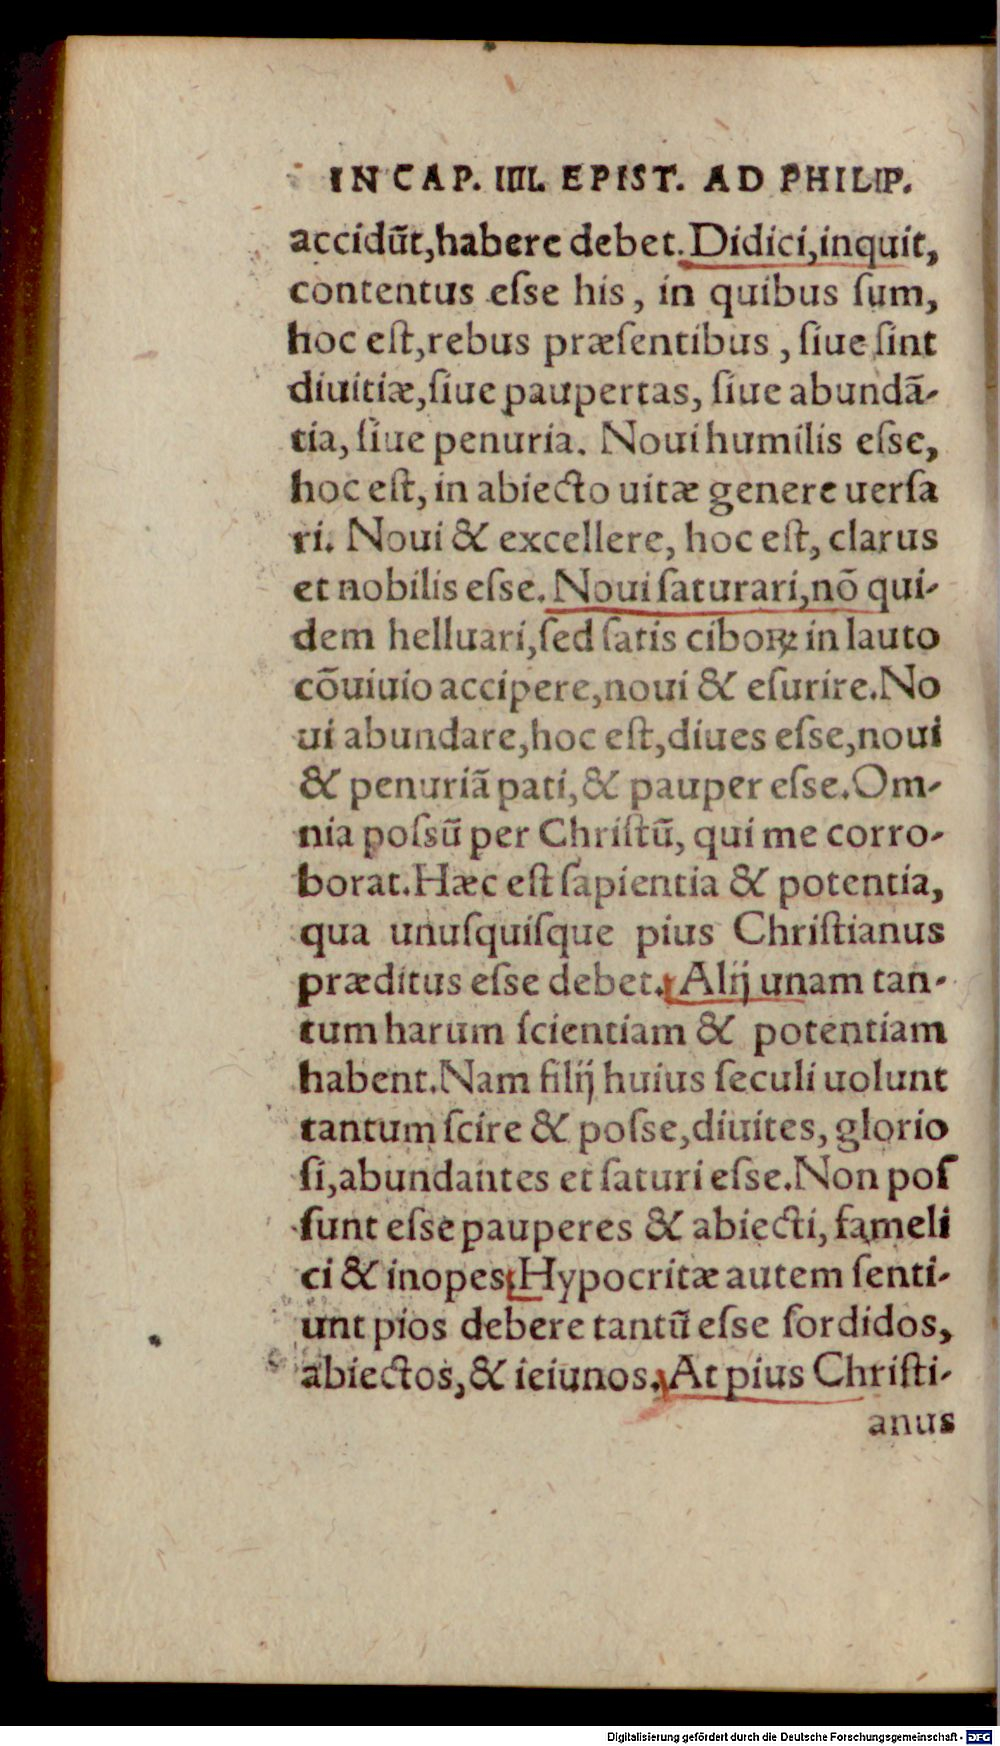 IN CAP. IIII. EPIST. AD PHILIP.
accidūt,habere debet.Didici,inquit,
contentus eſse his, in quibus ſum,
hoc eſt,rebus præſentibus, ſiue ſint
diuitiæ,ſiue paupertas, ſiue abundā-
tia, ſiue penuria. Noui humilis eſse,
hoc eſt, in abiecto uitæ genere uerſa
ri. Noui & excellere, hoc eſt, clarus
et nobilis eſse. Noui ſaturari,nō qui-
dem helluari,ſed ſatis ciboꝝ in lauto
cōuiuio accipere,noui & eſurire.No
ui abundare,hoc eſt,diues eſse,noui
& penuriā pati,& pauper eſse.Om-
nia poſsū per Chriſtū, qui me corro-
borat.Hæc eſt ſapientia & potentia,
qua unuſquiſque pius Chriſtianus
præditus eſse debet. Alij unam tan-
tum harum ſcientiam & potentiam
habent.Nam filij huius ſeculi uolunt
tantum ſcire & poſse,diuites, glorio
ſi,abundantes et ſaturi eſse.Non poſ
ſunt eſse pauperes & abiecti, fameli
ci & inopes. Hypocritæ autem ſenti-
unt pios debere tantū eſse ſordidos,
abiectos,& ieiunos. At pius Chriſti-
anus
Digitalisierung gefördert durch die Deutsche Forschungsgemeinschaft - DFG